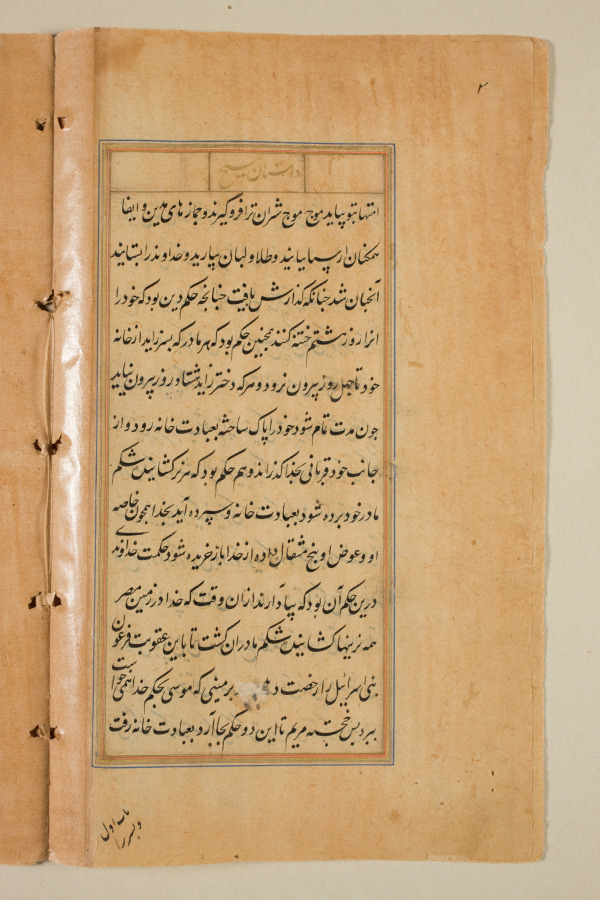 ۴
داستان مسیح
امتها بتو بیاید موج موج شتران ترا فروگیرند و جمازهای مدین و ایفا
همکنان از سبا بیایند و طلا و لبان بیارید و خداوند را بستایند
آنچنان شد چنانکه گذارش یافت چنانچه حکم دین بود که خود را
انرا روز هشتم ختنه کنند همچنین حکم بود که هر مادر که پسر زاید از خانه
خود تا چهل روز بیرون نرود و هر که دختر زاید هشتاد روز بیرون نیاید
چون مدت تمام شود خود را پاک ساخته بعبادت خانه رود و از
جانب خود قربانی بخدا گذراند و هم حکم بود که هر نر گشایندهٔ شکم
مادر خود برده شود بعبادت خانه و سپرده آید بخدا همچون خاصه
او و عوض او پنج مثقال داده از خدا باز خریده شود حکمت خداوندی
درین حکم آن بود که بیاد آرند ازان وقت که خدا در زمین مصر
همه نرینها گشایندهٔ شکم مادران کشت تا باین عقوبت فرعون
بنی اسرائیل را رخصت بر مبنی که موسی بحکم خدا همی خواست
ببرد پس خجسته مریم تا این دو حکم بجا آرد بعبادت خانه رفت
باب اول
و پسر را